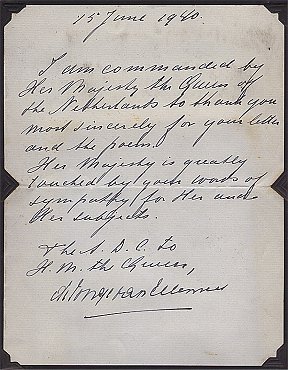 15 June 1940.
I am commanded by
Her Majesty the Queen of
the Netherlands to thank you
most sincerely for your letter
and the poem.
Her Majesty is greatly
touched by your words of
sympathy for Her and
Her subjects.
The A. D. C. to
H. M. the Queen,
de Jonge van Ellemeet